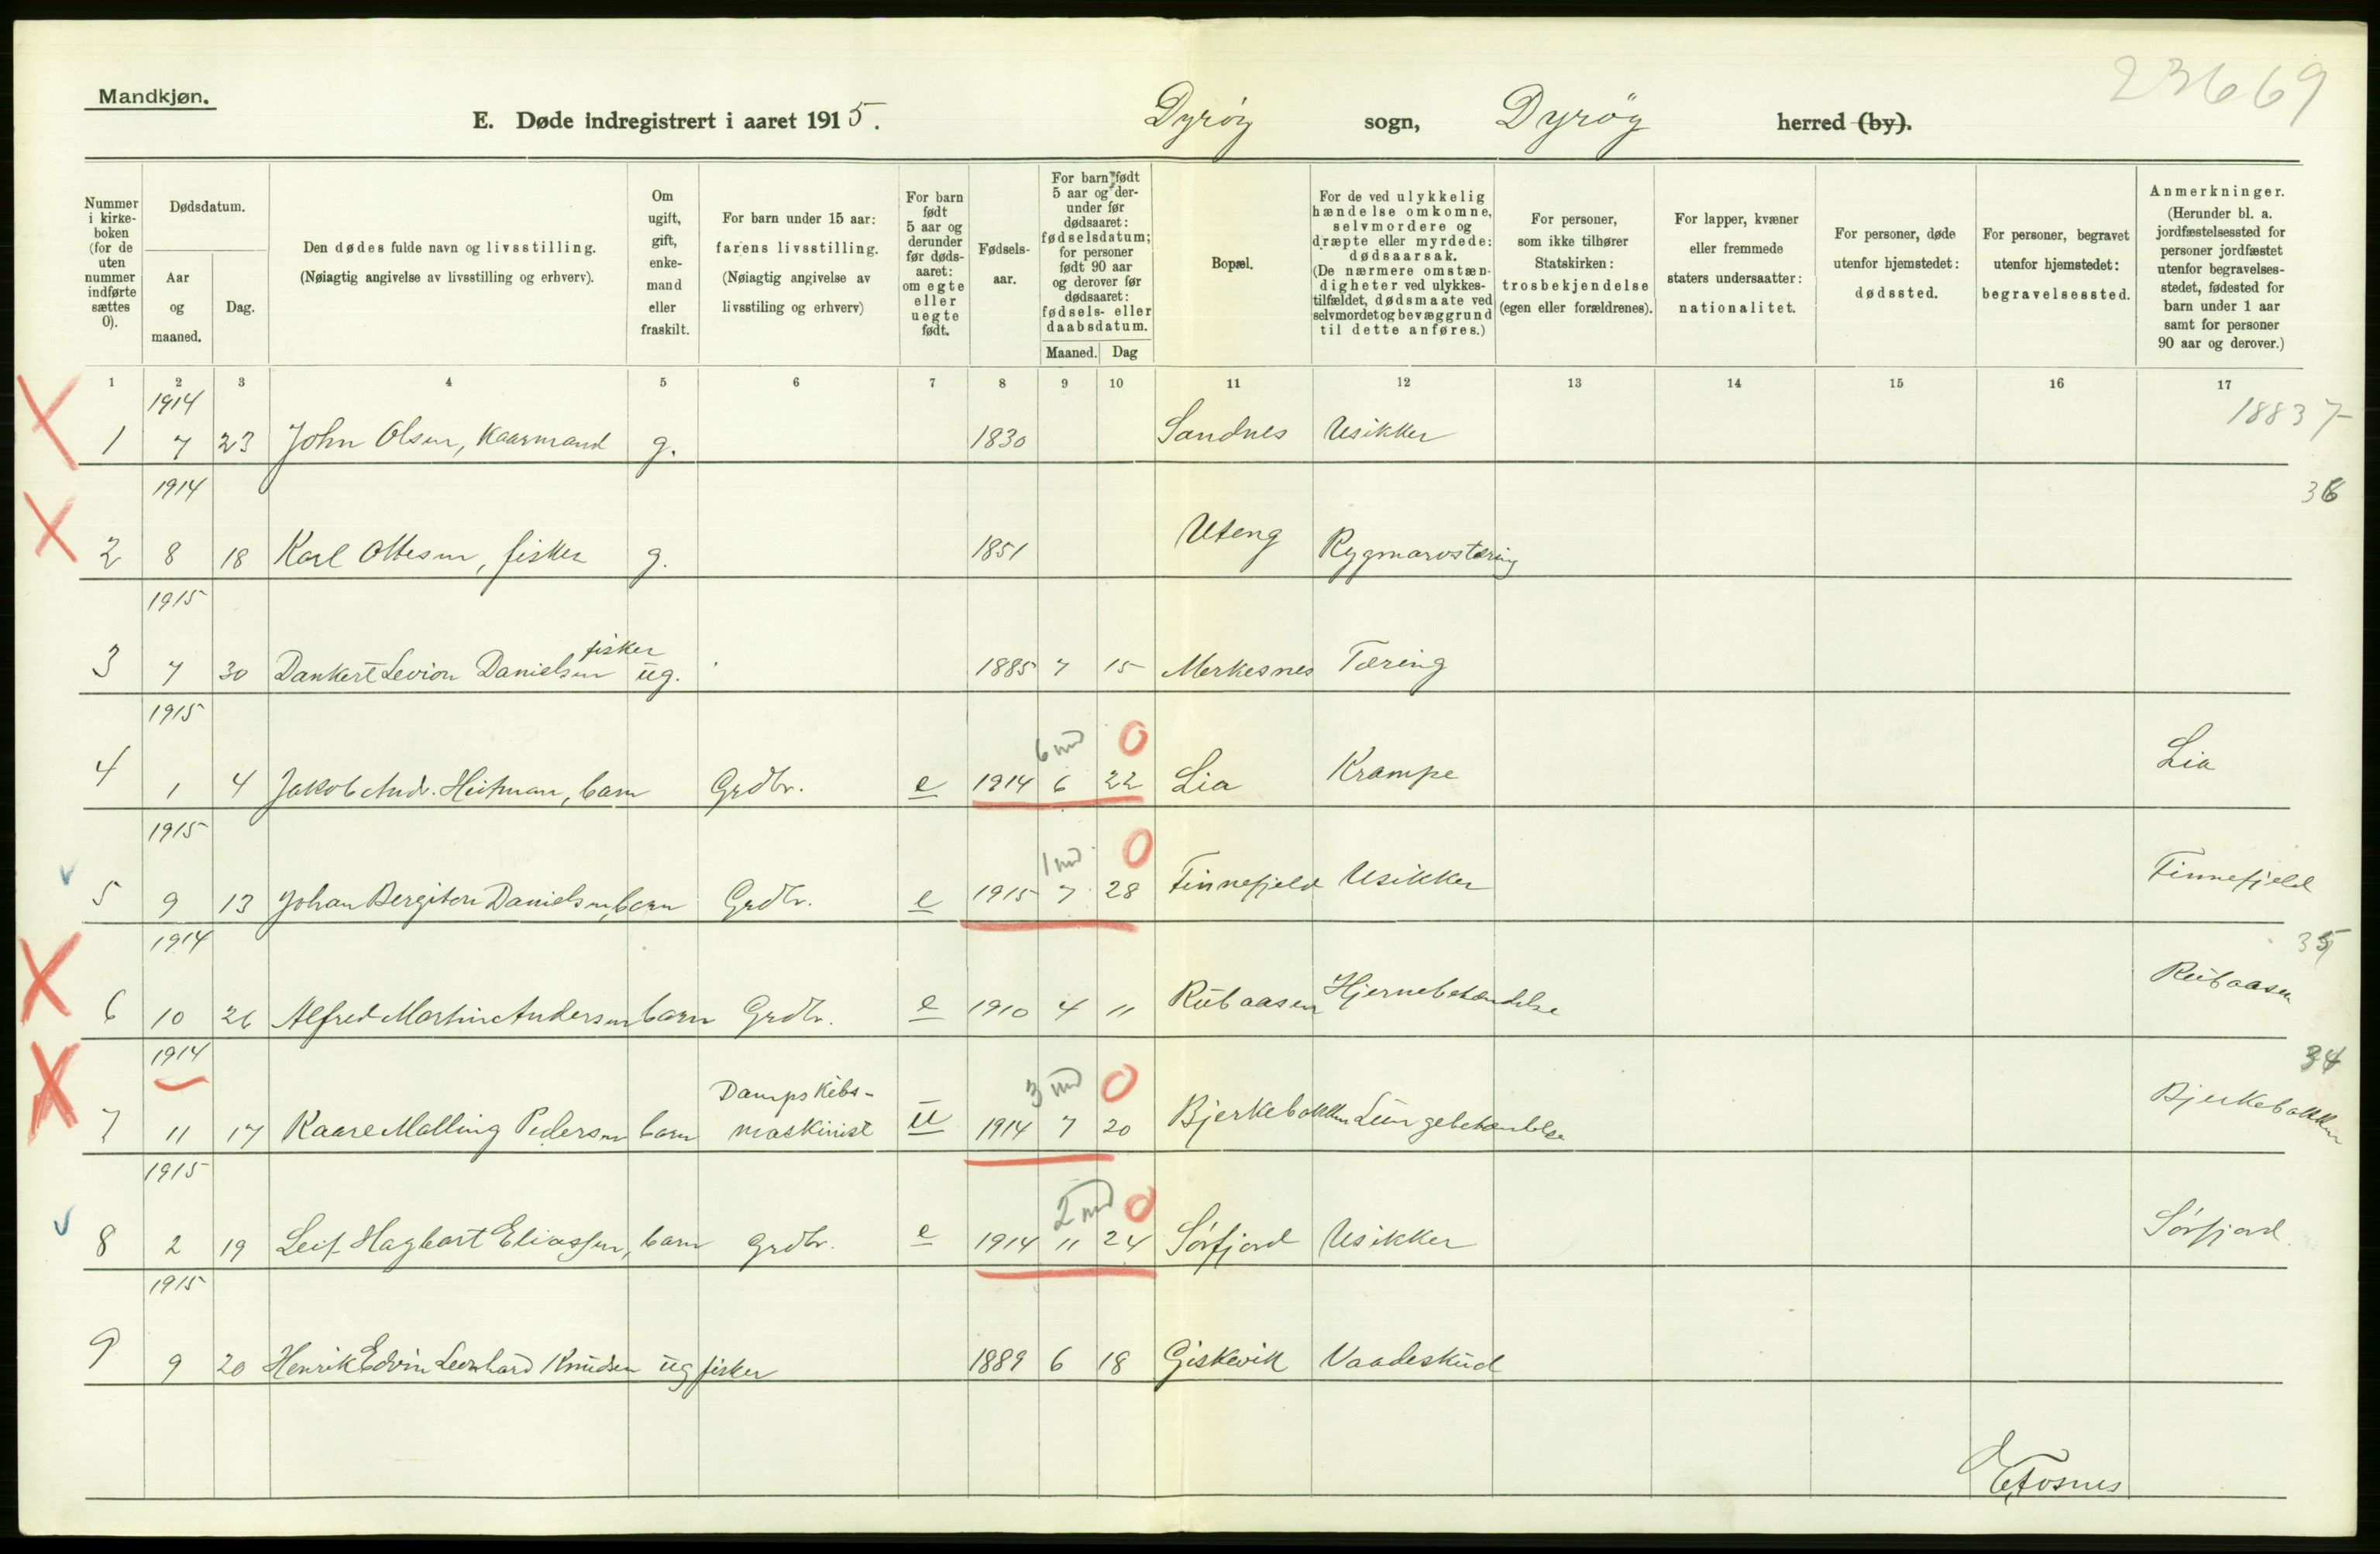 23669
Mandkjøn.
E. Døde indregistrert i aaret 1915. Dyrøy sogn, Dyröy herred (by).
Nummer i kirke- boken (for de uten nummer indførte sættes 0).
Dødsdatum.
Aar og maaned.
Dag.
Den dødes fulde navn og livsstilling.
(Nøiagtig angivelse av livsstilling og erhverv).
Om ugift, gift, enke- mand eller fraskilt.
For barn under 15 aar: farens livsstilling. (Nøiagtig angivelse av livsstiling og erhverv)
For barn født 5 aar og derunder før døds- aaret: om egte eller uegte født.
Fødsels- aar.
For barn født 5 aar og der- under før dødsaaret: fødselsdatum; for personer født 90 aar og derover før dødsaaret: fødsels- eller daabsdatum.
Maaned. Dag
Bopæl.
For de ved ulykkelig hændelse omkomne, selvmordere og dræpte eller myrdede: dødsaarsak. (De nærmere omstæn- digheter ved ulykkes- tilfældet, dødsmaate ved selvmordet og bevæggrund til dette anføres.)
For personer, som ikke tilhører Statskirken: trosbekjendelse (egen eller forældrenes).
For lapper, kvæner eller fremmede staters undersaatter: nationalitet.
For personer, døde utenfor hjemstedet: dødssted.
For personer, begravet utenfor hjemstedet: begravelsessted.
Anmerkninger. (Herunder bl. a. jordfæstelsessted for personer jordfæstet utenfor begravelses- stedet, fødested for barn under 1 aar samt for personer 90 aar og derover.)
1 2 3 4 5 6 7 8 9 10 11 12 13 14 15 16 17
1914 18837
1 7 23 John Olsen, Kaarmand g. 1830 Sandnes Usikker
1914 36
2 8 18 Karl Ottesen, fisker g. 1851 Uteng Rygmarvstæring
1915
fisker
3 7 30 Dankert Levion Danielsen ug. 1885 7 15 Merkesnes Tæring
1915
6 md 0
4 1 4 Jakob Andr. Heitman, barn Grdbr. e 1914 6 22 Lia Krampe Lia
1915
1 md 0
5 9 13 Johan Bergiton Danielsen, barn Grdbr. e 1915 7 28 Finnefjeld Usikker Finnefjeld
1914 35
6 10 26 Alfred Martin Andersen barn Grdbr. e 1910 4 11 Rubaasen Hjernebetændelse Rubaasen
1914 34
3 md 0
Dampskibs-
7 11 17 Kaare Malling Pedersen barn maskinist u 1914 7 20 Bjerkebakken Lungebetændelse Bjerkebakken
1915
2 md 0
8 2 19 Leif Hagbart Eliassen, barn Grdbr. e 1914 11 24 Sørfjord Usikker Sørfjord.
1915
9 9 20 Henrik Edvin Leonhard Knudsen ug fisker 1889 6 18 Giskevik Vaadeskud